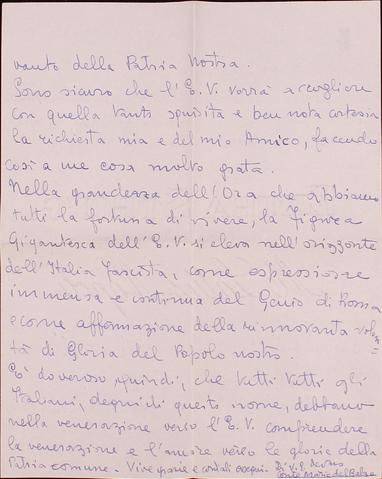 vanto della Patria Nostra.
Sono sicuro che l'E.V. vorrà accogliere
con quella tanto squisita e ben nota cortesia
la richiesta mia e del mio Amico, facendo
così a me cosa molto grata.
Nella grandezza dell'Ora che abbiamo
tutti la fortuna di vivere, la Figura
Gigantesca dell'E.V. si eleva nell'orizzonte
dell'Italia Fascista, come espressione
immensa e continua del Genio di Roma
e come affermazione della rinnovanta volon=
tà di Gloria del Popolo nostro.
È doveroso, quindi, che tutti tutti gli
Italiani, degni di questo nome, debbano
nella venerazione verso l'E.V. comprendere
la venerazione e l'amore verso le glorie della
Patria comune - Vive grazie e cordiali ossequi. Di V.E. devmo
Conte Mario del Balzo